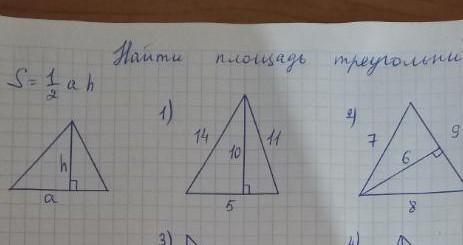 Найти площадь треугольни
S = 1/2 a h
h
a
1)
14
10
11
5
2)
7
6
9
8
3)
4)